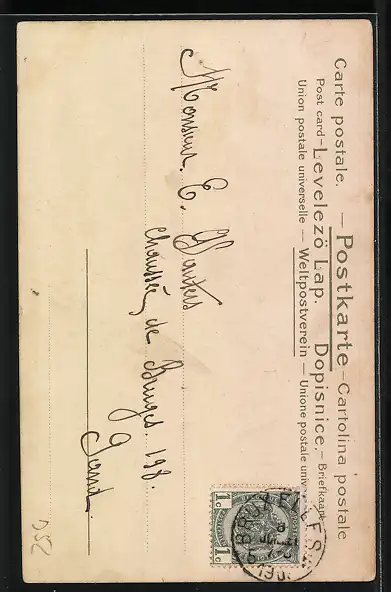 Carte postale. — Postkarte — Cartolina postale
Post card — Levelező Lap. Dopisnice. — Briefkaart
Union postale universelle — Weltpostverein — Unione postale univer
BRUXELLES
1c 1c
Monsieur E.
Chaussée de Bruges. 198.
Gand.
D52